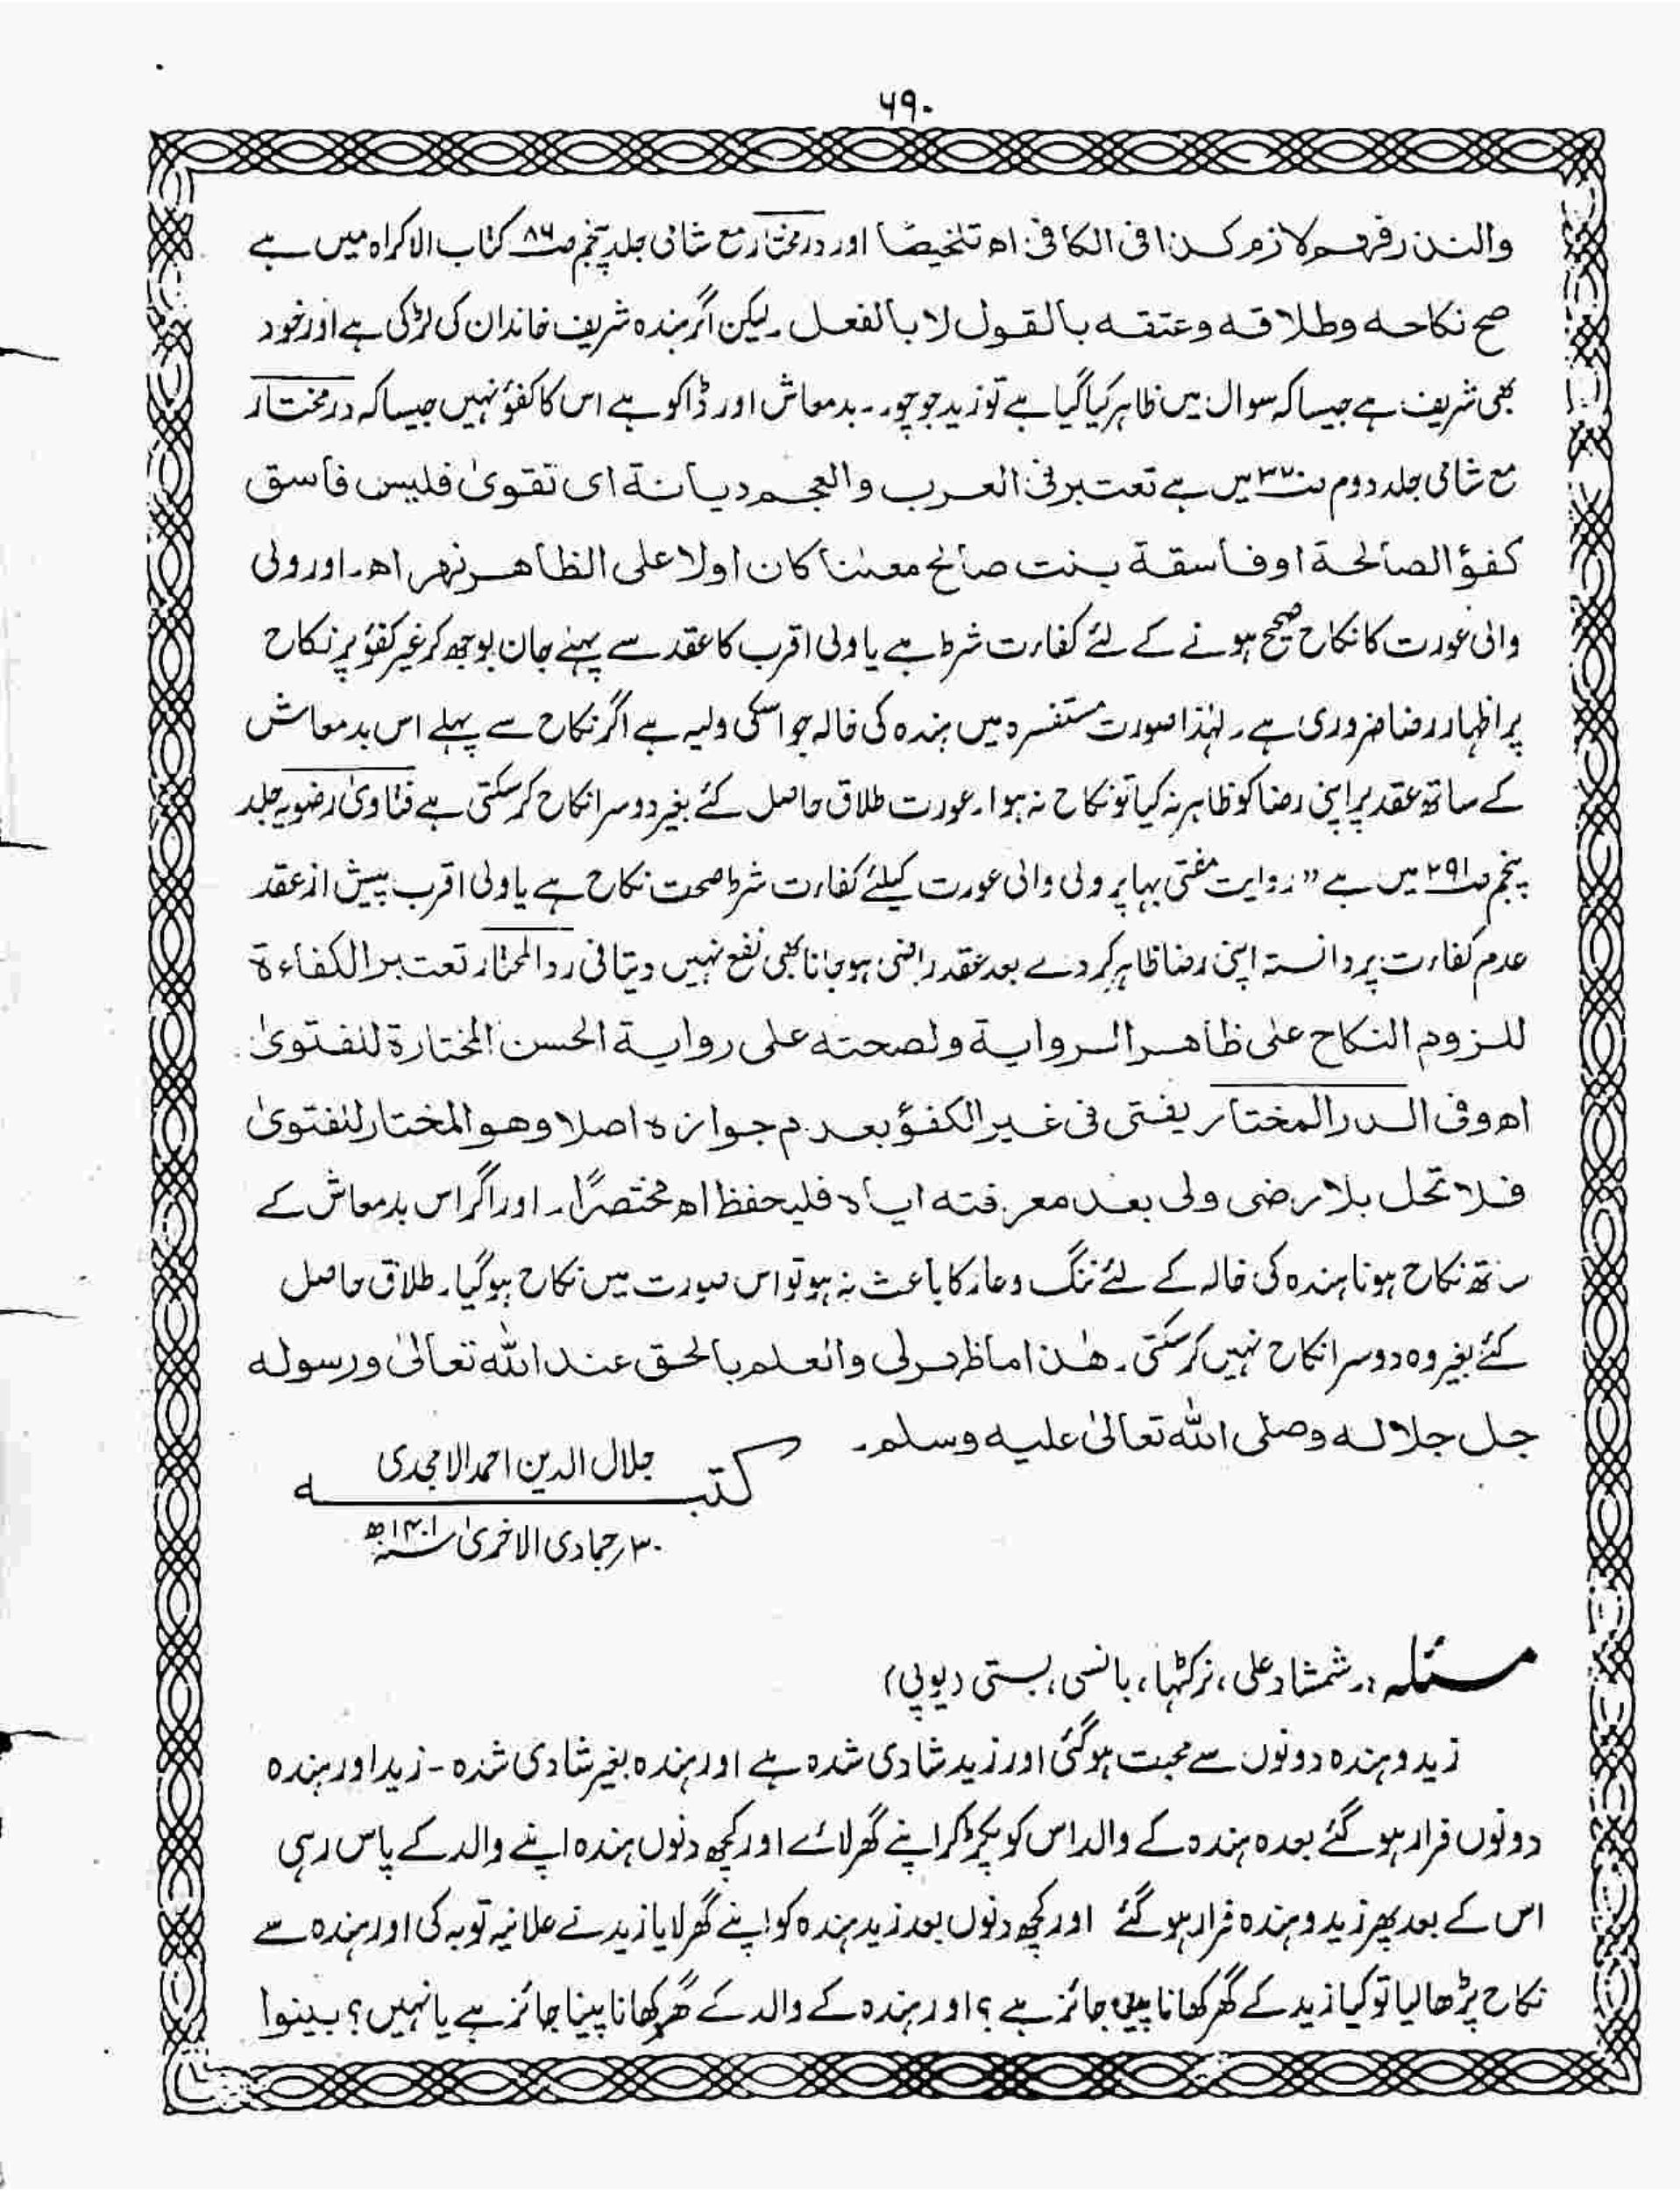 ۶۹۰
والنذر فہو لازم کذا فی الکافی اھ تلخیصًا اور درمختار مع شامی جلد پنجم ص۸۶ کتاب الاکراہ میں ہے
صح نکاحہ وطلاقہ وعتقہ بالقول لا بالفعل ۔ لیکن اگر ہندہ شریف خاندان کی لڑکی ہے اور خود
بھی شریف ہے جیسا کہ سوال میں ظاہر کیا گیا ہے تو زید جو چور ۔ بدمعاش اور ڈاکو ہے اس کا کفؤ نہیں جیسا کہ درمختار
مع شامی جلد دوم ص۳۲۰ میں ہے تعتبر فی العرب والعجم دیانۃ ای تقویٰ فلیس فاسق
کفؤ الصالحۃ او فاسقۃ بنت صالح معلنا کان اولا علی الظاہر نہر اھ۔ اور ولی
والی عورت کا نکاح صحیح ہونے کے لئے کفاءت شرط ہے یا ولی اقرب کا عقد سے پہلے جان بوجھ کر غیر کفؤ پر نکاح
پر اظہار رضا ضروری ہے ۔ لہٰذا صورت مستفسرہ میں ہندہ کی خالہ جو اسکی ولیہ ہے اگر نکاح سے پہلے اس بدمعاش
کے ساتھ عقد پر اپنی رضا کو ظاہر نہ کیا تو نکاح نہ ہوا ۔ عورت طلاق حاصل کئے بغیر دوسرا نکاح کرسکتی ہے فتاویٰ رضویہ جلد
پنجم ص۲۹۱ میں ہے ” روایت مفتی بہا پر ولی والی عورت کیلئے کفاءت شرط صحت نکاح ہے یا ولی اقرب پیش از عقد
عدم کفاءت پر دانستہ اپنی رضا ظاہر کردے بعد عقد راضی ہوجانا بھی نفع نہیں دیتا فی رد المحتار تعتبر الکفاءۃ
للزوم النکاح علی ظاہر الروایۃ ولصحتہ علی روایۃ الحسن المختارۃ للفتویٰ
اھ وفی الدر المختار یفتی فی غیر الکفؤ بعدم جوازہ اصلا وھو المختار للفتویٰ
فلا تحل بلا رضی ولی بعد معرفتہ ایاہ فلیحفظ اھ مختصرًا ۔ اور اگر اس بدمعاش کے
ساتھ نکاح ہونا ہندہ کی خالہ کے لئے ننگ وعار کا باعث نہ ہو تو اس صورت میں نکاح ہوگیا ۔ طلاق حاصل
کئے بغیر وہ دوسرا نکاح نہیں کرسکتی ۔ ھٰذا ما ظہر لی والعلم بالحق عند اللّٰہ تعالیٰ ورسولہ
جل جلالہ وصلی اللّٰہ تعالیٰ علیہ وسلم۔
جلال الدین احمد الامجدی
کتبہ
۳۰؍ جمادی الاخریٰ سنہ ۱۴۰۱ھ
مسئلہ :۔ شمشاد علی، نرکٹہا، بانسی، بستی (یوپی)
زید و ہندہ دونوں سے محبت ہوگئی اور زید شادی شدہ ہے اور ہندہ بغیر شادی شدہ ۔ زید اور ہندہ
دونوں فرار ہو گئے بعدہ ہندہ کے والد اس کو پکڑ کر اپنے گھر لائے اور کچھ دنوں ہندہ اپنے والد کے پاس رہی
اس کے بعد پھر زید و ہندہ فرار ہو گئے اور کچھ دنوں بعد زید ہندہ کو اپنے گھر لایا زید نے علانیہ توبہ کی اور ہندہ سے
نکاح پڑھا لیا تو کیا زید کے گھر کھانا پینا جائز ہے ؟ اور ہندہ کے والد کے گھر کھانا پینا جائز ہے یا نہیں ؟ بینوا